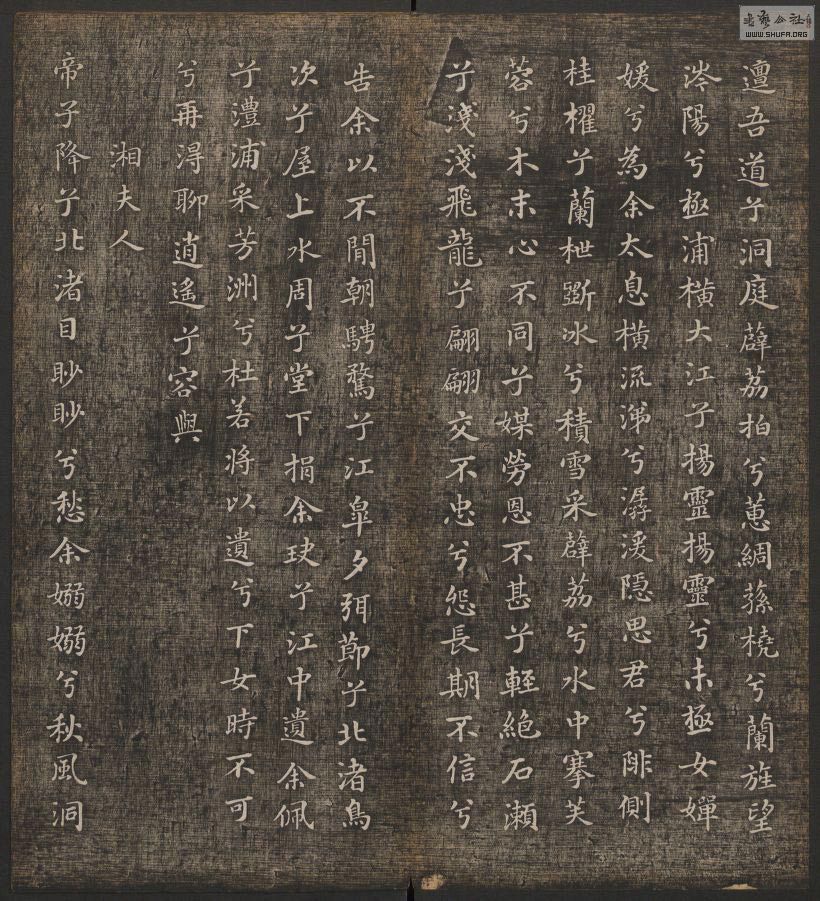 邅吾道兮洞庭薜荔拍兮蕙綢蓀橈兮蘭旌望
涔陽兮極浦橫大江兮揚靈揚靈兮未極女嬋
媛兮為余太息橫流涕兮潺湲隱思君兮陫側
桂櫂兮蘭枻斲冰兮積雪采薜荔兮水中搴芙
蓉兮木末心不同兮媒勞恩不甚兮輕絕石瀨
兮淺淺飛龍兮翩翩交不忠兮怨長期不信兮
告余以不閒朝騁騖兮江皐夕弭節兮北渚鳥
次兮屋上水周兮堂下捐余玦兮江中遺余佩
兮澧浦采芳洲兮杜若將以遺兮下女時不可
兮再淂聊逍遙兮容與
湘夫人
帝子降兮北渚目眇眇兮愁余嫋嫋兮秋風洞
書藝公社
WWW.SHUFA.ORG